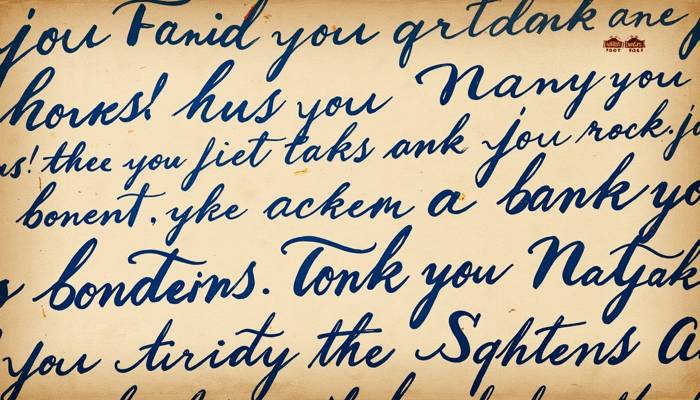 you Fanid you qrtdank ane
horks! hus you Nany you
us! thee you fiet taks ank you rock.
bonent, yke ackem a bank yo
bondeins. Tonk you Natjak
you tiridty the Sqhtens A